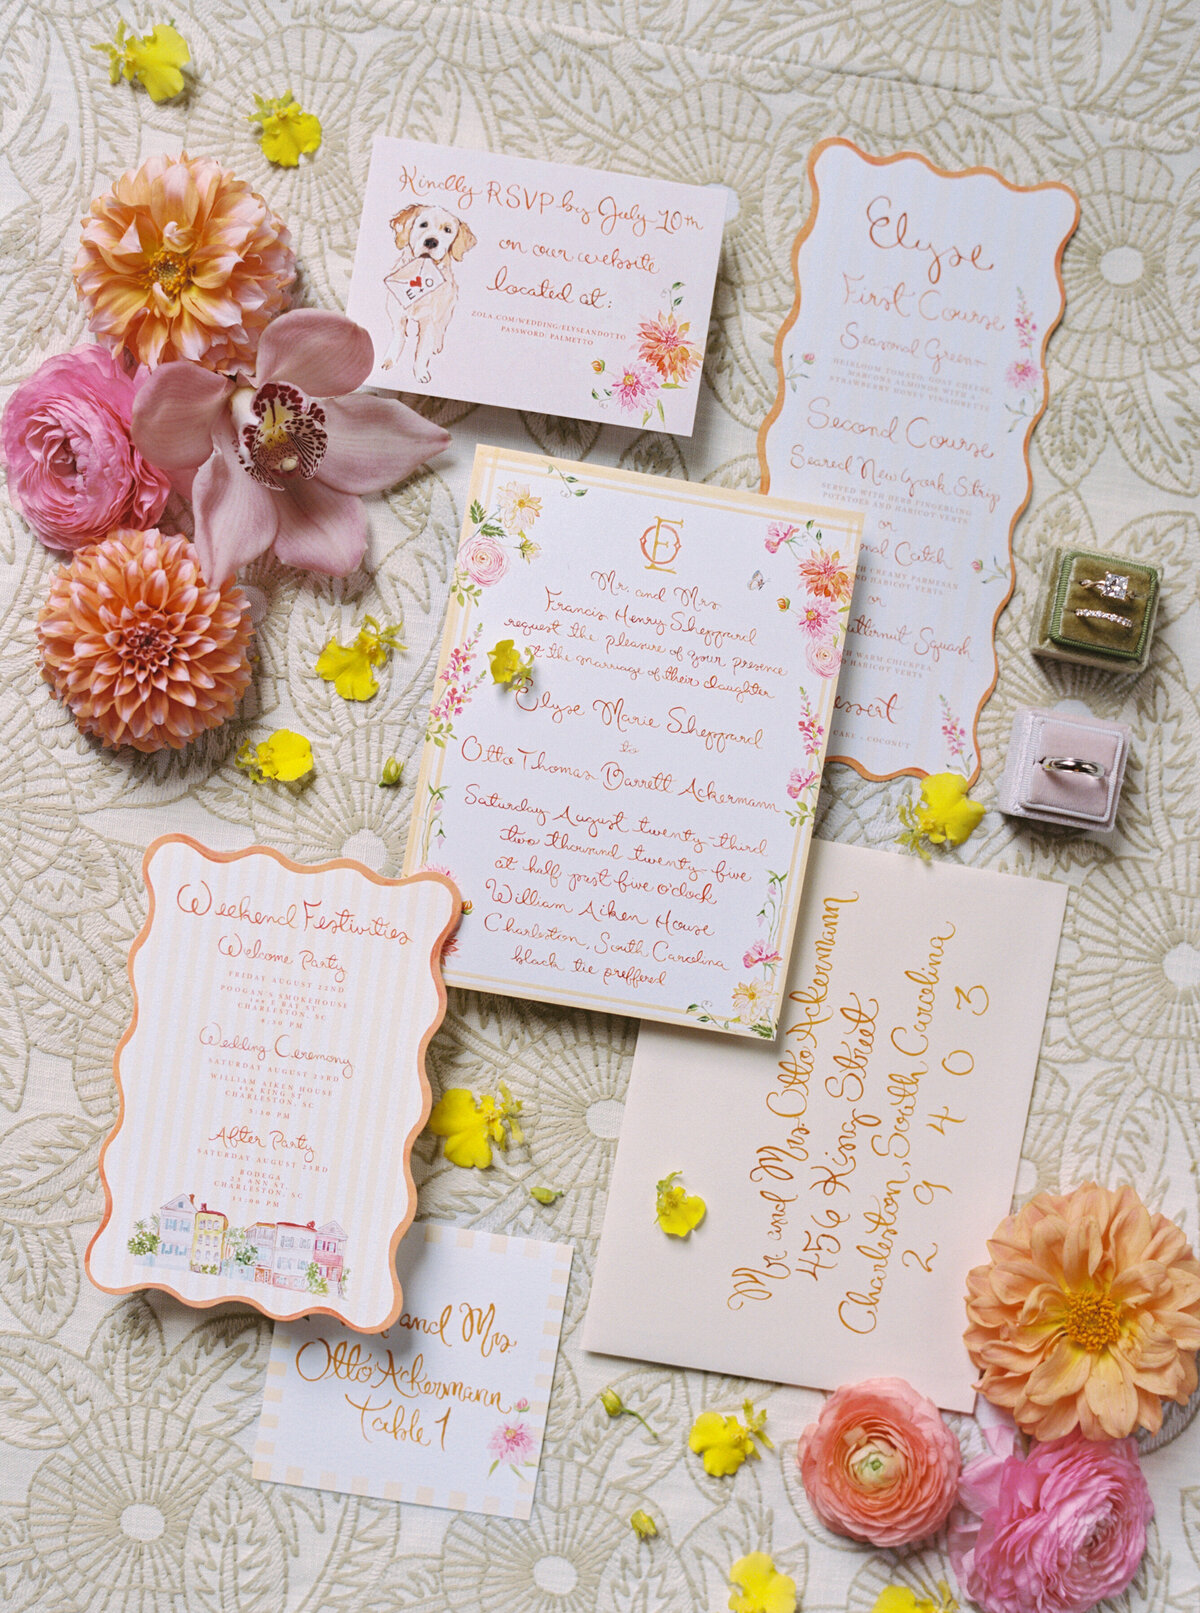 Kindly RSVP by July 10th
on our website
located at:
ZOLA.COM/WEDDING/ELYSEANDOTTO
PASSWORD: PALMETTO
E+O
Elyse
First Course
Seasonal Greens
HEIRLOOM TOMATO, GOAT CHEESE,
MARCONA ALMONDS WITH A
STRAWBERRY HONEY VINAIGRETTE
Second Course
Seared New York Strip
SERVED WITH HERB FINGERLING
POTATOES AND HARICOT VERTS
or
Catch
CREAMY PARMESAN
AND HARICOT VERTS
or
Squash
WARM CHICKPEA
HARICOT VERTS
CAKE + COCONUT
EO
Mr. and Mrs.
Francis Henry Sheppard
request the pleasure of your presence
at the marriage of their daughter
Elyse Marie Sheppard
to
Otto Thomas Barrett Ackermann
Saturday August twenty-third
two thousand twenty five
at half past five o'clock
William Aiken House
Charleston, South Carolina
black tie preffered
Weekend Festivities
Welcome Party
FRIDAY AUGUST 22ND
POOGAN'S SMOKEHOUSE
188 E BAY ST
CHARLESTON, SC
6:30 PM
Wedding Ceremony
SATURDAY AUGUST 23RD
WILLIAM AIKEN HOUSE
456 KING ST
CHARLESTON, SC
5:30 PM
After Party
SATURDAY AUGUST 23RD
BODEGA
23 ANN ST.
CHARLESTON, SC
11:00 PM
Mr and Mrs. Otto Ackermann
456 King Street
Charleston, South Carolina
29403
and Mrs.
Otto Ackermann
Table 1